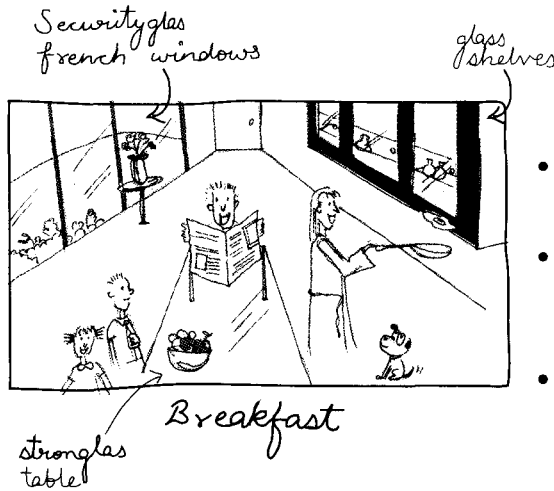 Securityglas
french windows
glass
shelves
Breakfast
stronglas
table